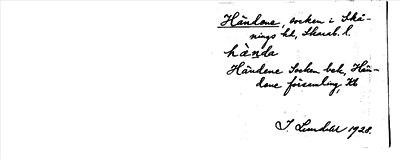 Händene, socken i Skå-
nings hd, Skarab. l.
hä̀nda
Händene Socken bek, Hän-
dene församling, Kb
I. Lundahl 1928.